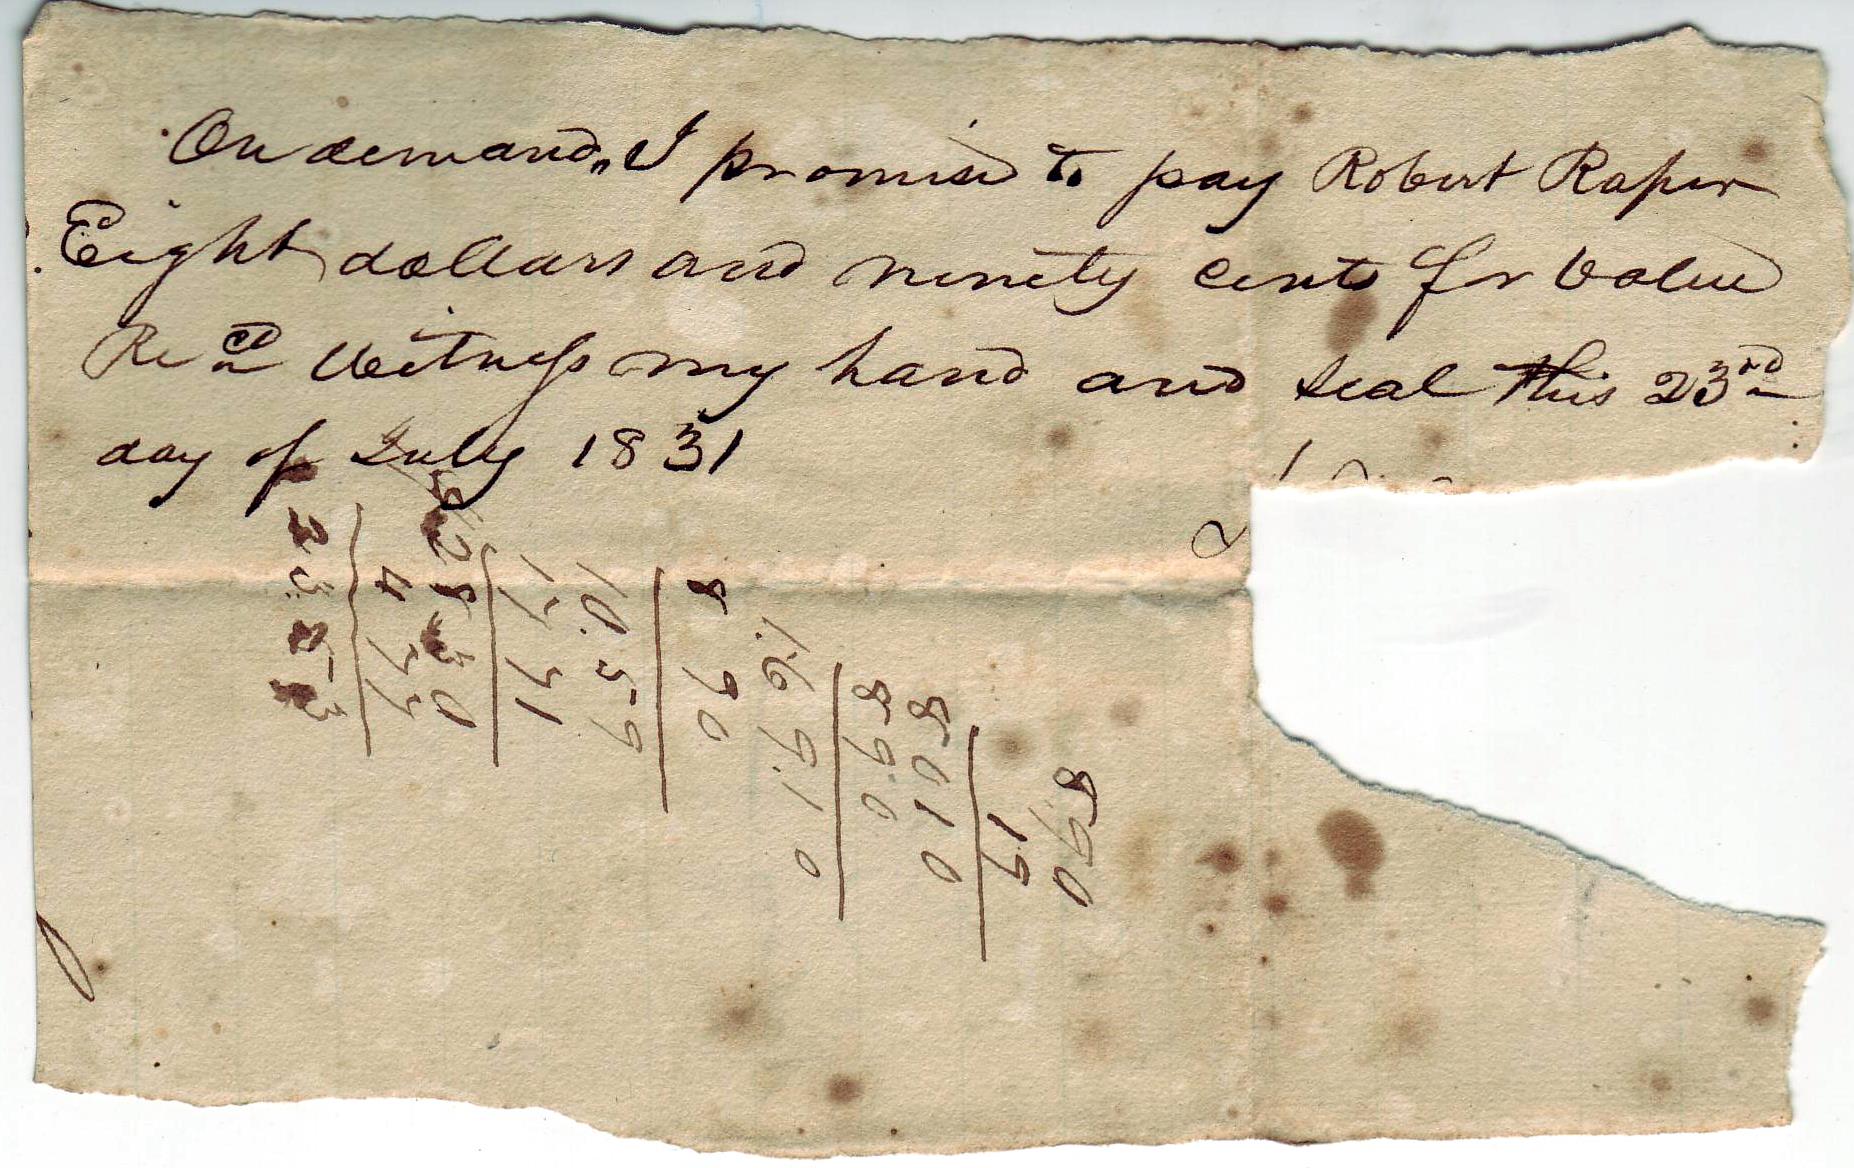 On demand,, I promise to pay Robert Raper
Eight dollars and ninety cents for Value
Recd Witness my hand and seal this 23rd
day of July 1831
8.90
19
8010
890
1.69.10
8 90
10.59
17 71
28 30
4 77
23 53